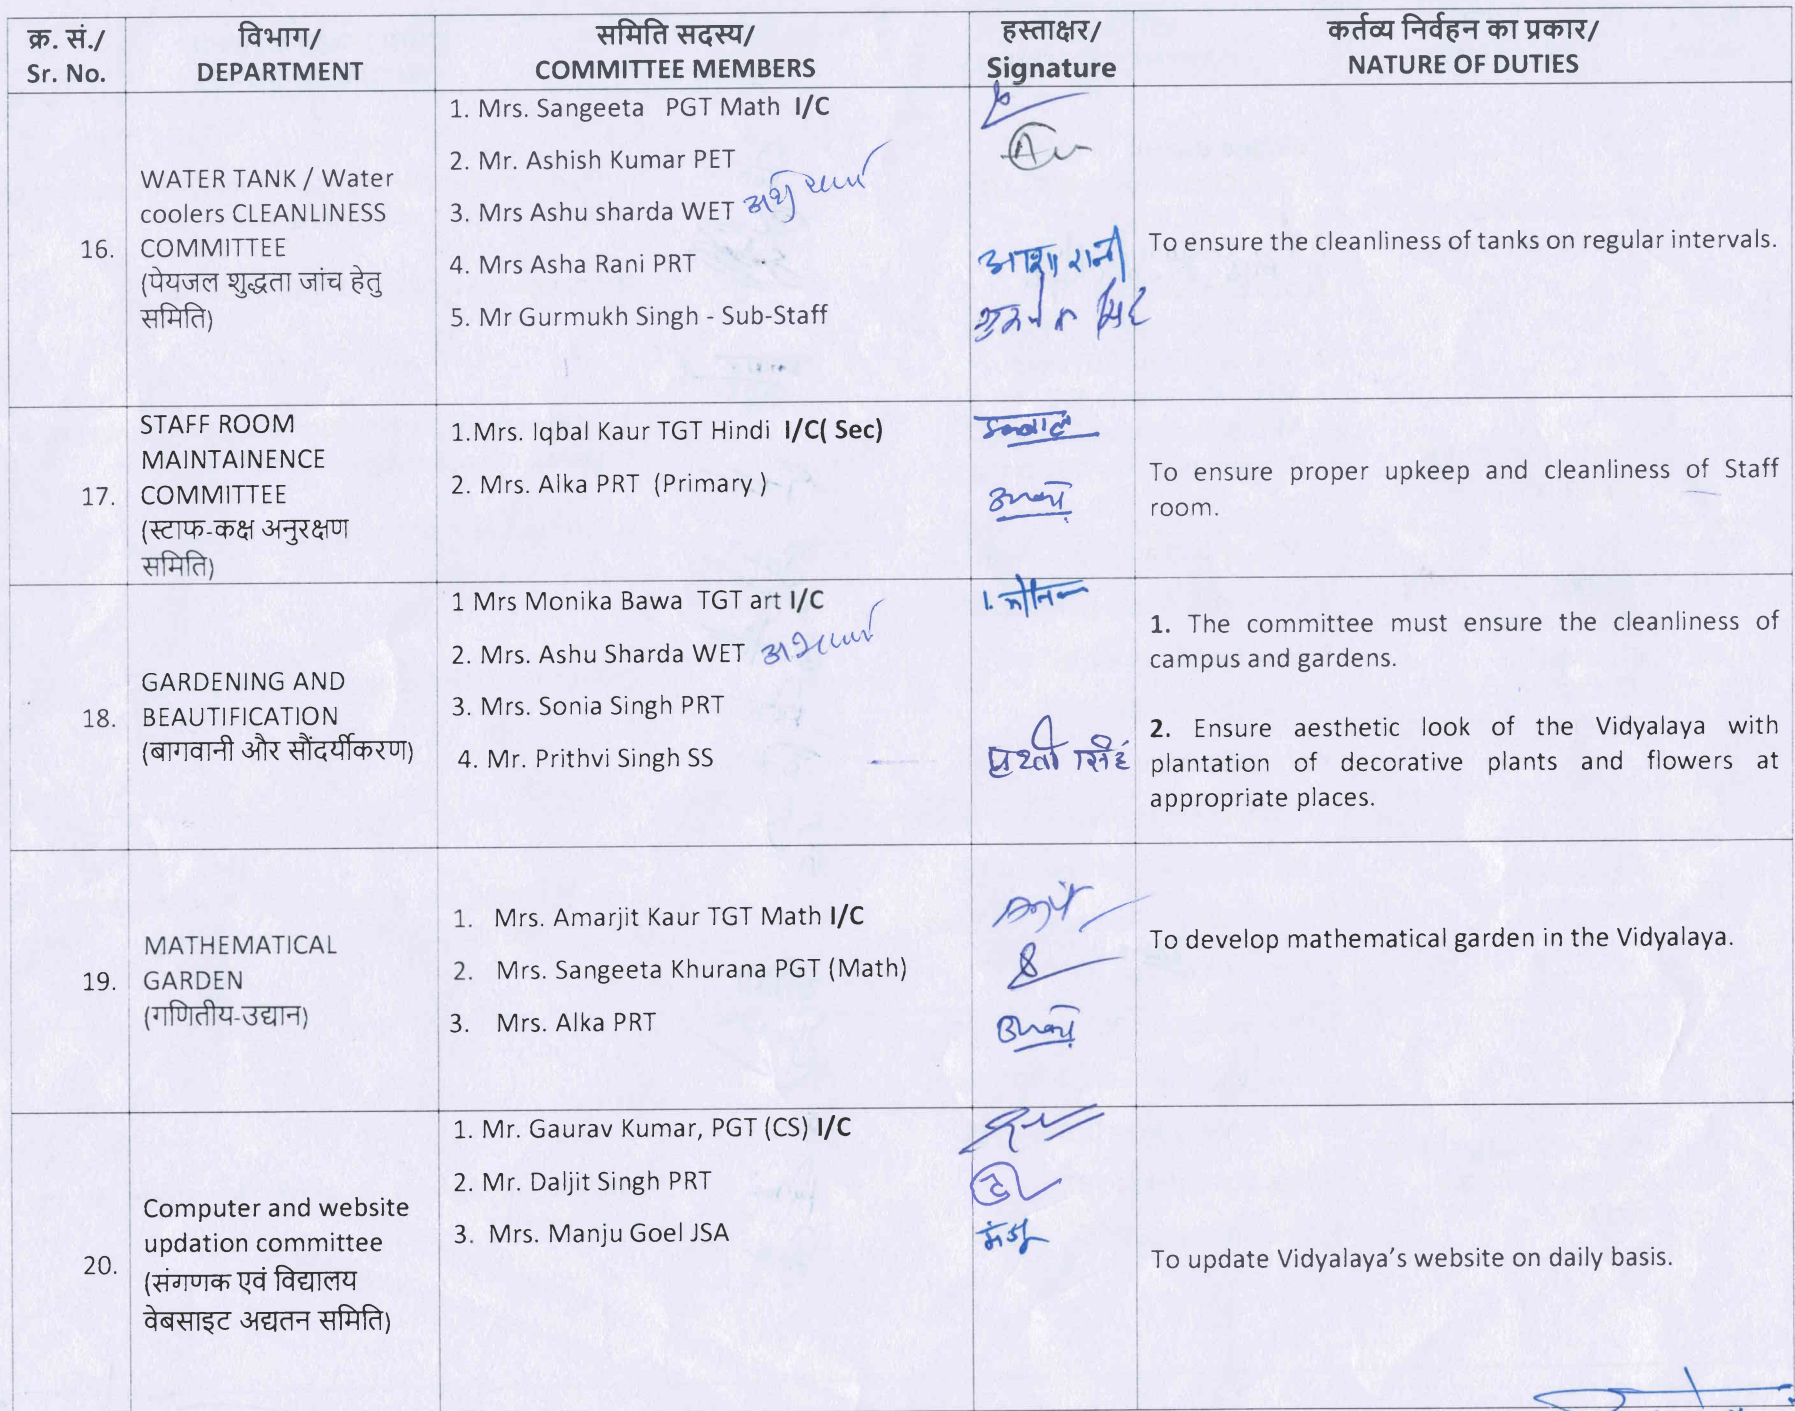 क्र. सं./
Sr. No.
विभाग/
DEPARTMENT
समिति सदस्य/
COMMITTEE MEMBERS
हस्ताक्षर/
Signature
कर्तव्य निर्वहन का प्रकार/
NATURE OF DUTIES
16.
WATER TANK / Water
coolers CLEANLINESS
COMMITTEE
(पेयजल शुद्धता जांच हेतु
समिति)
1. Mrs. Sangeeta PGT Math I/C
2. Mr. Ashish Kumar PET
3. Mrs Ashu sharda WET
4. Mrs Asha Rani PRT
5. Mr Gurmukh Singh - Sub-Staff
आशा रानी
To ensure the cleanliness of tanks on regular intervals.
17.
STAFF ROOM
MAINTAINENCE
COMMITTEE
(स्टाफ-कक्ष अनुरक्षण
समिति)
1.Mrs. Iqbal Kaur TGT Hindi I/C( Sec)
2. Mrs. Alka PRT (Primary )
To ensure proper upkeep and cleanliness of Staff
room.
18.
GARDENING AND
BEAUTIFICATION
(बागवानी और सौंदर्यीकरण)
1 Mrs Monika Bawa TGT art I/C
2. Mrs. Ashu Sharda WET
3. Mrs. Sonia Singh PRT
4. Mr. Prithvi Singh SS
1. The committee must ensure the cleanliness of
campus and gardens.
2. Ensure aesthetic look of the Vidyalaya with
plantation of decorative plants and flowers at
appropriate places.
19.
MATHEMATICAL
GARDEN
(गणितीय-उद्यान)
1. Mrs. Amarjit Kaur TGT Math I/C
2. Mrs. Sangeeta Khurana PGT (Math)
3. Mrs. Alka PRT
To develop mathematical garden in the Vidyalaya.
20.
Computer and website
updation committee
(संगणक एवं विद्यालय
वेबसाइट अद्यतन समिति)
1. Mr. Gaurav Kumar, PGT (CS) I/C
2. Mr. Daljit Singh PRT
3. Mrs. Manju Goel JSA
मंजू
To update Vidyalaya's website on daily basis.